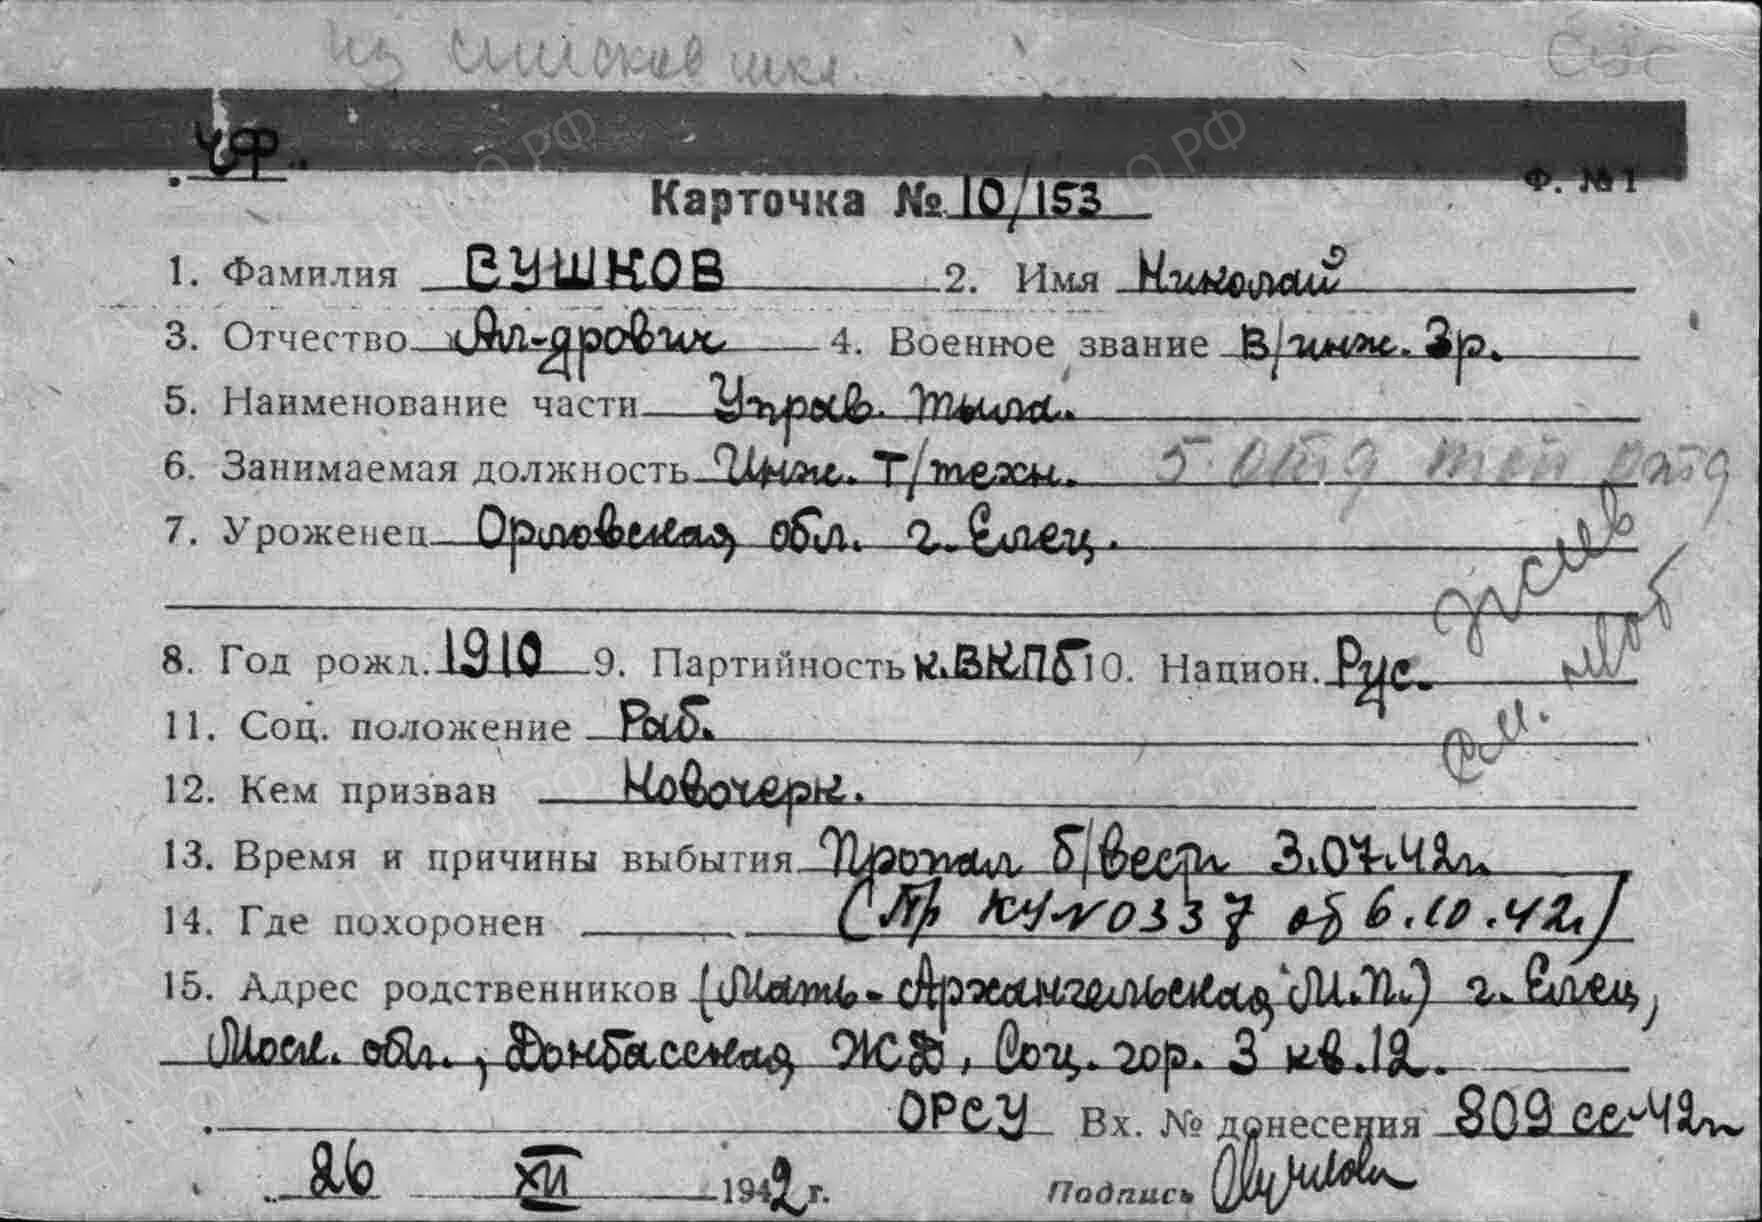 из списков
ЧФ
Ф. №1
Карточка № 10/153
1. Фамилия СУШКОВ 2. Имя Николай
3. Отчество Ал-дрович 4. Военное звание В/инж. 3р.
5. Наименование части Управ. тыла.
6. Занимаемая должность Инж. Т/техн. 5 отд
7. Уроженец Орловская обл. г. Елец.
8. Год рожд. 1910 9. Партийность к.ВКПб 10. Национ. Рус.
11. Соц. положение Раб.
12. Кем призван Новочерк.
13. Время и причины выбытия Пропал б/вести 3.07.42г
14. Где похоронен (Пр КУ№0337 от 6.10.42г)
15. Адрес родственников (Мать-Архангельская М.П.) г. Елец,
Моск. обл., Донбасская ЖД, Соц. гор. 3 кв.12.
ОРСУ Вх. № донесения 809 сс-42г
26 XII 1942 г. Подпись